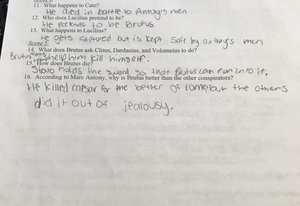 11. What happens to Cato?
He died in battle to Antony's men
12. Who does Lucilius pretend to be?
He pretends to be Brutus
13. What happens to Lucilius?
He gets captured but is kept safe by antony's men
Scene 5:
14. What does Brutus ask Clitus, Dardanius, and Volumnius to do?
Brutus help him kill himself.
15. How does Brutus die?
Strato holds the sword so that Brutus can run into it.
16. According to Marc Antony, why is Brutus better than the other conspirators?
He killed caesar for the better of rome, but the others
did it out of jealousy.